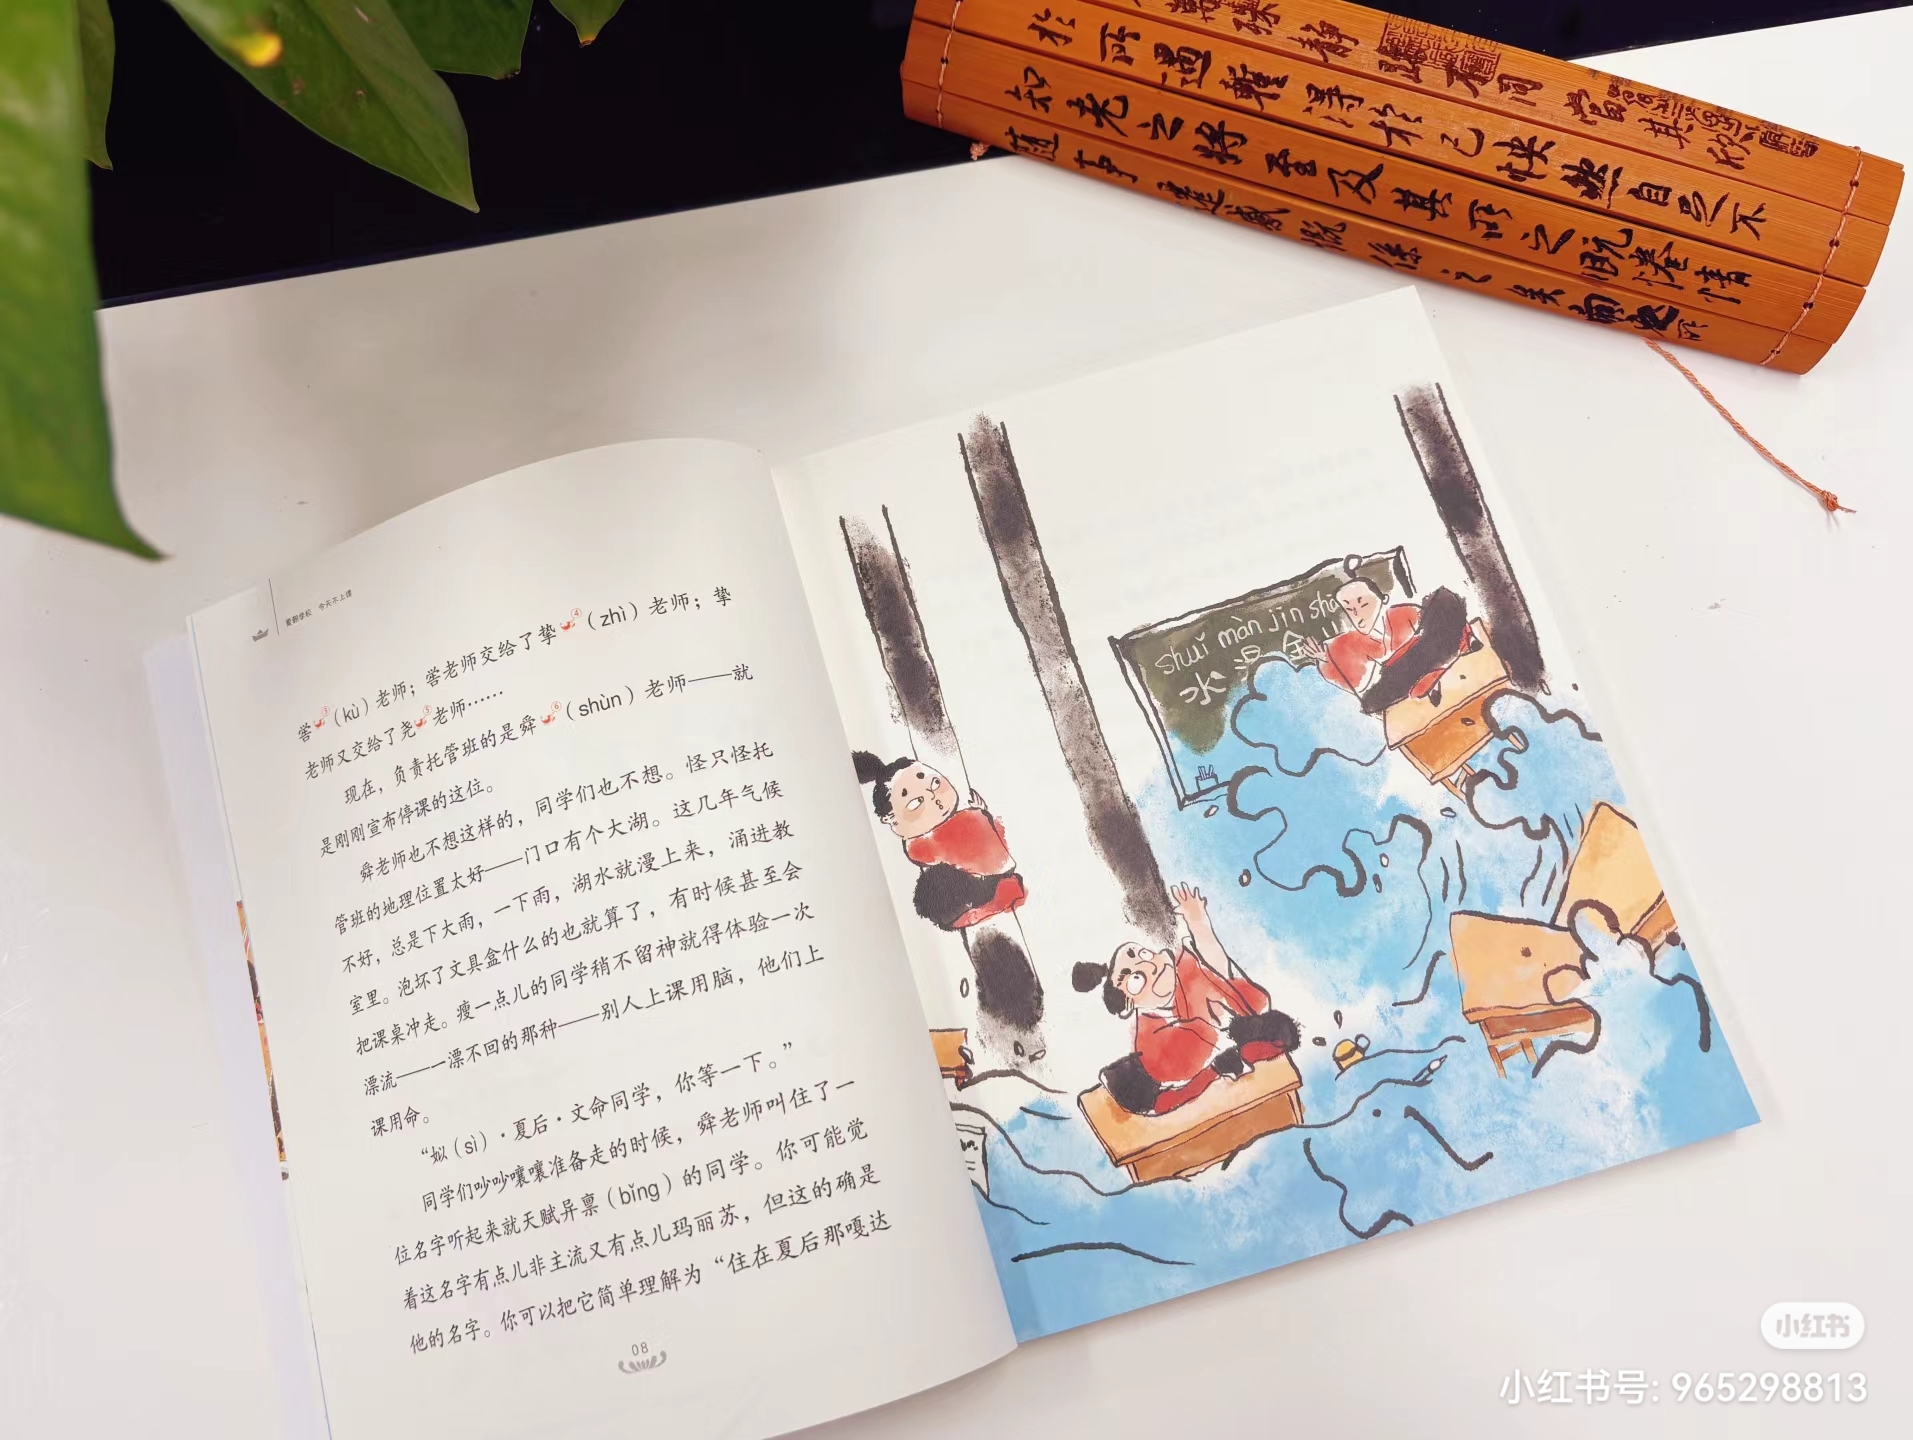 於所遇暫得於己快然自足不
知老之將至及其所之既惓情
隨事遷感慨係之矣向之所
今天不上课
喾③（kù）老师；喾老师交给了挚④（zhì）老师；挚
老师又交给了尧⑤老师……
现在，负责托管班的是舜⑥（shùn）老师——就
是刚刚宣布停课的这位。
舜老师也不想这样的，同学们也不想。怪只怪托
管班的地理位置太好——门口有个大湖。这几年气候
不好，总是下大雨，一下雨，湖水就漫上来，涌进教
室里。泡坏了文具盒什么的也就算了，有时候甚至会
把课桌冲走。瘦一点儿的同学稍不留神就得体验一次
漂流——一漂不回的那种——别人上课用脑，他们上
课用命。
“姒（sì）·夏后·文命同学，你等一下。”
同学们吵吵嚷嚷准备走的时候，舜老师叫住了一
位名字听起来就天赋异禀（bǐng）的同学。你可能觉
着这名字有点儿非主流又有点儿玛丽苏，但这的确是
他的名字。你可以把它简单理解为“住在夏后那嘎达
08
shuǐ màn jīn shā
水漫金山
小红书
小红书号: 965298813